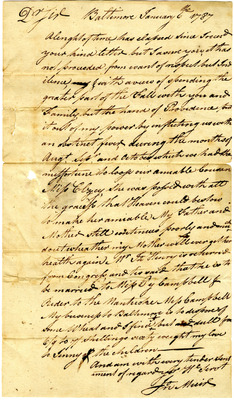 Dr Sir Baltimore January 6th 1787
A lenght of time has elapsed Since I recd
your kind letter but I assure you, it has
not proceeded from want of respect but
I was in favours of spending the
greater part of the Fall with you and
Family, but the hand of Providence, put
it out of my power by inflicting us with
an obstinet fever during the months of
Augt Sept and Octr in which we had the
misfortune to loose our amiable Cousin
Miss . She was possesed with all
the graces that Heaven could bestow
to make her amiable My Father and
Mother still continues poorly and
doubt wheather my Mother will ever get
health again Wm Henry is returned
from Congress and its said that he is to
be married to Miss Campbell
to the Nantikoke Miss Campbell
My business to Baltimore is to dispose of
some Wheat and I find but dull from
6/ to 7/ Shillings
to Jinny & the Children
And am with every tender
ment of regard your Hble Servt